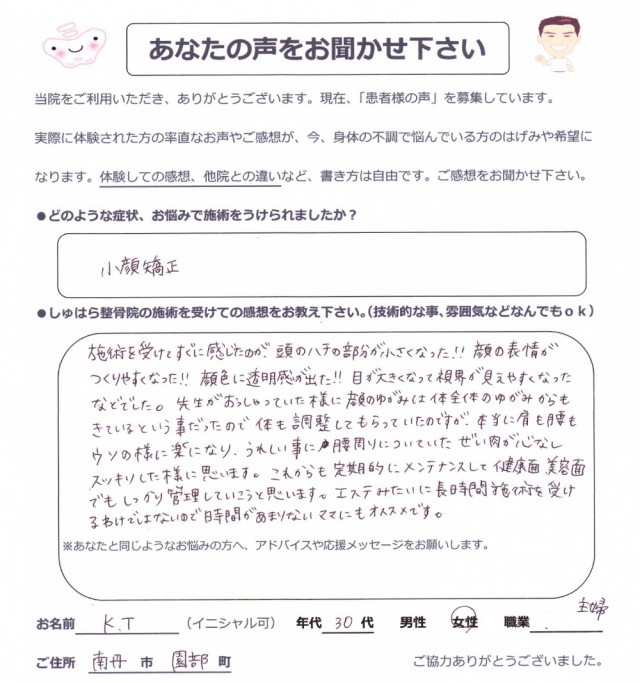 あなたの声をお聞かせ下さい
当院をご利用いただき、ありがとうございます。現在、「患者様の声」を募集しています。
実際に体験された方の率直なお声やご感想が、今、身体の不調で悩んでいる方のはげみや希望に
なります。体験しての感想、他院との違いなど、書き方は自由です。ご感想をお聞かせ下さい。
●どのような症状、お悩みで施術をうけられましたか？
小顔矯正
●しゅはら整骨院の施術を受けての感想をお教え下さい。（技術的な事、雰囲気などなんでもｏｋ）
施術を受けてすぐに感じたのが、頭のハチの部分が小さくなった!! 顔の表情が
つくりやすくなった!! 顔色に透明感が出た!! 目が大きくなって視界が見えやすくなった
などでした。先生がおっしゃっていた様に顔のゆがみは体全体のゆがみからも
きているという事だったので体も調整してもらっていたのですが、本当に肩も腰も
ウソの様に楽になり、うれしい事に腰周りについていたぜい肉が心なし
スッキリした様に思います。これからも定期的にメンテナンスして健康面、美容面
でもしっかり管理していこうと思います。エステみたいに長時間施術を受け
るわけではないので時間があまりないママにもオススメです。
※あなたと同じようなお悩みの方へ、アドバイスや応援メッセージをお願いします。
お名前 K.T （イニシャル可） 年代 30 代 男性 女性 職業 主婦
ご住所 南丹 市 園部 町 ご協力ありがとうございました。